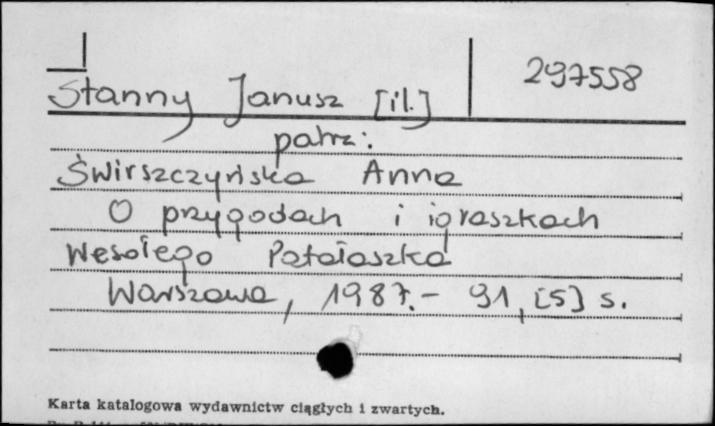 297558
Stanny Janusz [il.]
patrz:
Świrszczyńska Anna
O przygodach i igraszkach
Wesołego Patałaszka
Warszawa, 1987.- 91, [5] s.
Karta katalogowa wydawnictw ciągłych i zwartych.